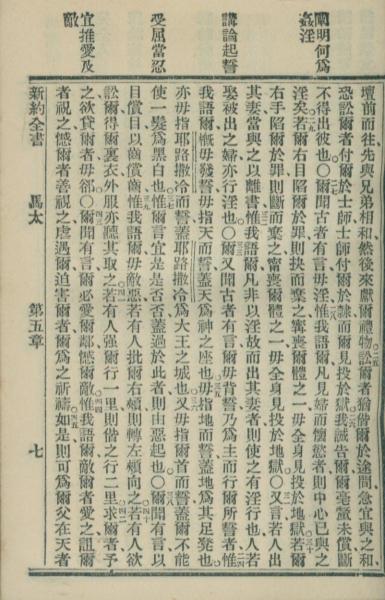 闡明何爲姦淫
講論起誓
受屈當忍
宜推愛及敵
壇前而往先與兄弟相和然後來獻爾禮物訟爾者猶偕爾於途間急宜與之和
恐訟爾者付爾於士師士師付爾於隸而爾見投於獄我誠告爾爾毫釐未償斷
不得出彼也○爾聞古者有言毋淫惟我語爾凡見婦而懷慾者則中心已與之
淫矣若爾右目陷爾於罪則抉而棄之寧喪爾體之一毋全身見投於地獄若爾
右手陷爾於罪則斷而棄之寧喪爾體之一毋全身見投於地獄○又言若人出
其妻當與之以離書惟我語爾凡非以淫故而出其妻者則使之有淫行也人若
娶被出之婦亦行淫也○爾又聞古者有言爾毋背誓乃爲主而行爾所誓者惟
我語爾槪毋發誓毋指天而誓蓋天爲神之座也毋指地而誓蓋地爲其足凳也
亦毋指耶路撒冷而誓蓋耶路撒冷爲大王之城也又毋指爾首而誓蓋爾不能
使一髮爲黑白也惟爾言宜是是否否蓋過於此者則由惡起也○爾聞有言以
目償目以齒償齒惟我語爾毋敵惡若有人批爾右頰則轉左頰向之若有人欲
訟爾得爾裏衣外服亦聽其取之若有人强爾行一里則偕之行二里求爾者予
之欲貸爾者毋郤○爾聞有言爾必愛爾鄰憾爾敵惟我語爾敵爾者愛之詛爾
者祝之憾爾者善視之虐遇爾迫害爾者爾爲之祈禱如是則可爲爾父在天者
新約全書 馬太 第五章 七